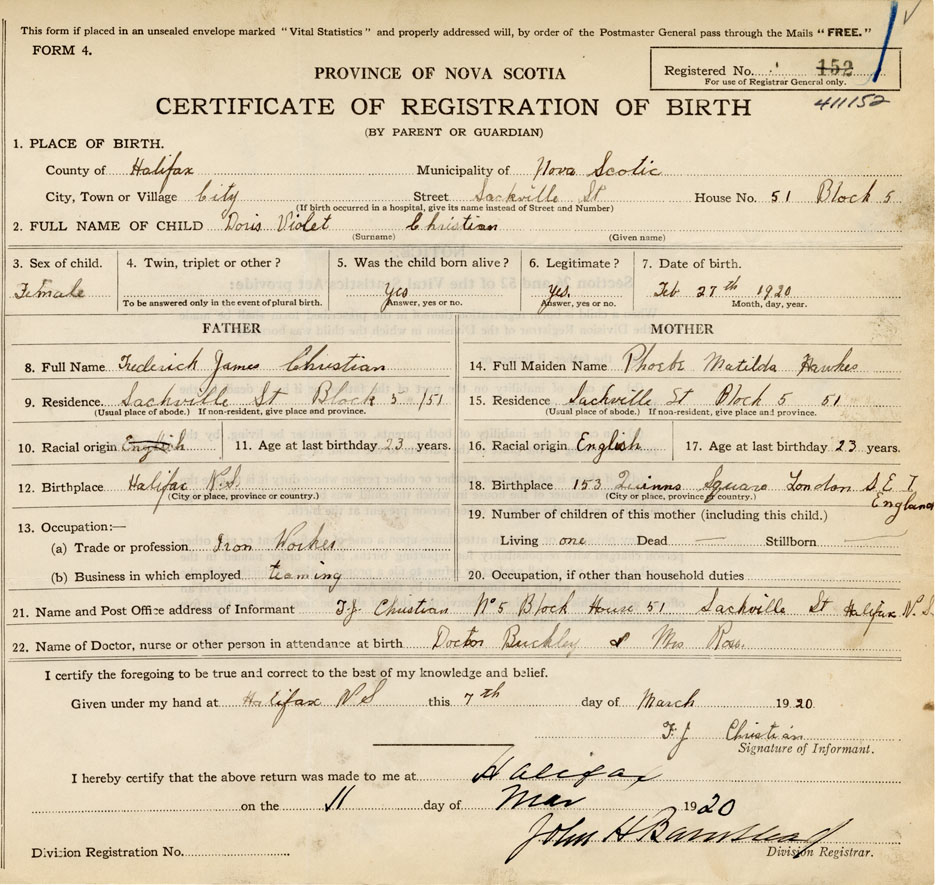 This form if placed in an unsealed envelope marked "Vital Statistics" and properly addressed will, by order of the Postmaster General pass through the Mails "FREE."
FORM 4.
Registered No. 152
For use of Registrar General only.
411152
PROVINCE OF NOVA SCOTIA
CERTIFICATE OF REGISTRATION OF BIRTH
(BY PARENT OR GUARDIAN)
1. PLACE OF BIRTH.
County of Halifax Municipality of Nova Scotic
City, Town or Village City Street Sackville St House No. 51 Block 5
(If birth occurred in a hospital, give its name instead of Street and Number)
2. FULL NAME OF CHILD Doris Violet Christian
(Surname) (Given name)
3. Sex of child. 4. Twin, triplet or other? 5. Was the child born alive? 6. Legitimate? 7. Date of birth.
Female Yes Yes. Feb 27th 1920
To be answered only in the event of plural birth. Answer, yes or no. Answer, yes or no. Month, day, year.
FATHER MOTHER
8. Full Name Frederick James Christian 14. Full Maiden Name Phoebe Matilda Hawkes
9. Residence Sackville St Block 5 /51 15. Residence Sackville St Block 5 51
(Usual place of abode.) If non-resident, give place and province. (Usual place of abode.) If non-resident, give place and province.
10. Racial origin English 11. Age at last birthday 23 years. 16. Racial origin English 17. Age at last birthday 23 years.
12. Birthplace Halifax N.S. 18. Birthplace 153 Square London S.E 1 England
(City or place, province or country.) (City or place, province or country.)
13. Occupation:— 19. Number of children of this mother (including this child.)
(a) Trade or profession Iron Workes Living one Dead — Stillborn —
(b) Business in which employed teaming 20. Occupation, if other than household duties
21. Name and Post Office address of Informant F.J Christian No 5 Block House 51 Sackville St Halifax N.S.
22. Name of Doctor, nurse or other person in attendance at birth Doctor Buckley & Mrs Ross.
I certify the foregoing to be true and correct to the best of my knowledge and belief.
Given under my hand at Halifax N S this 7th day of March 1920.
F. J Christian
Signature of Informant.
I hereby certify that the above return was made to me at Halifax
on the 11 day of Mar 1920
John H Barnstead
Division Registration No. Division Registrar.